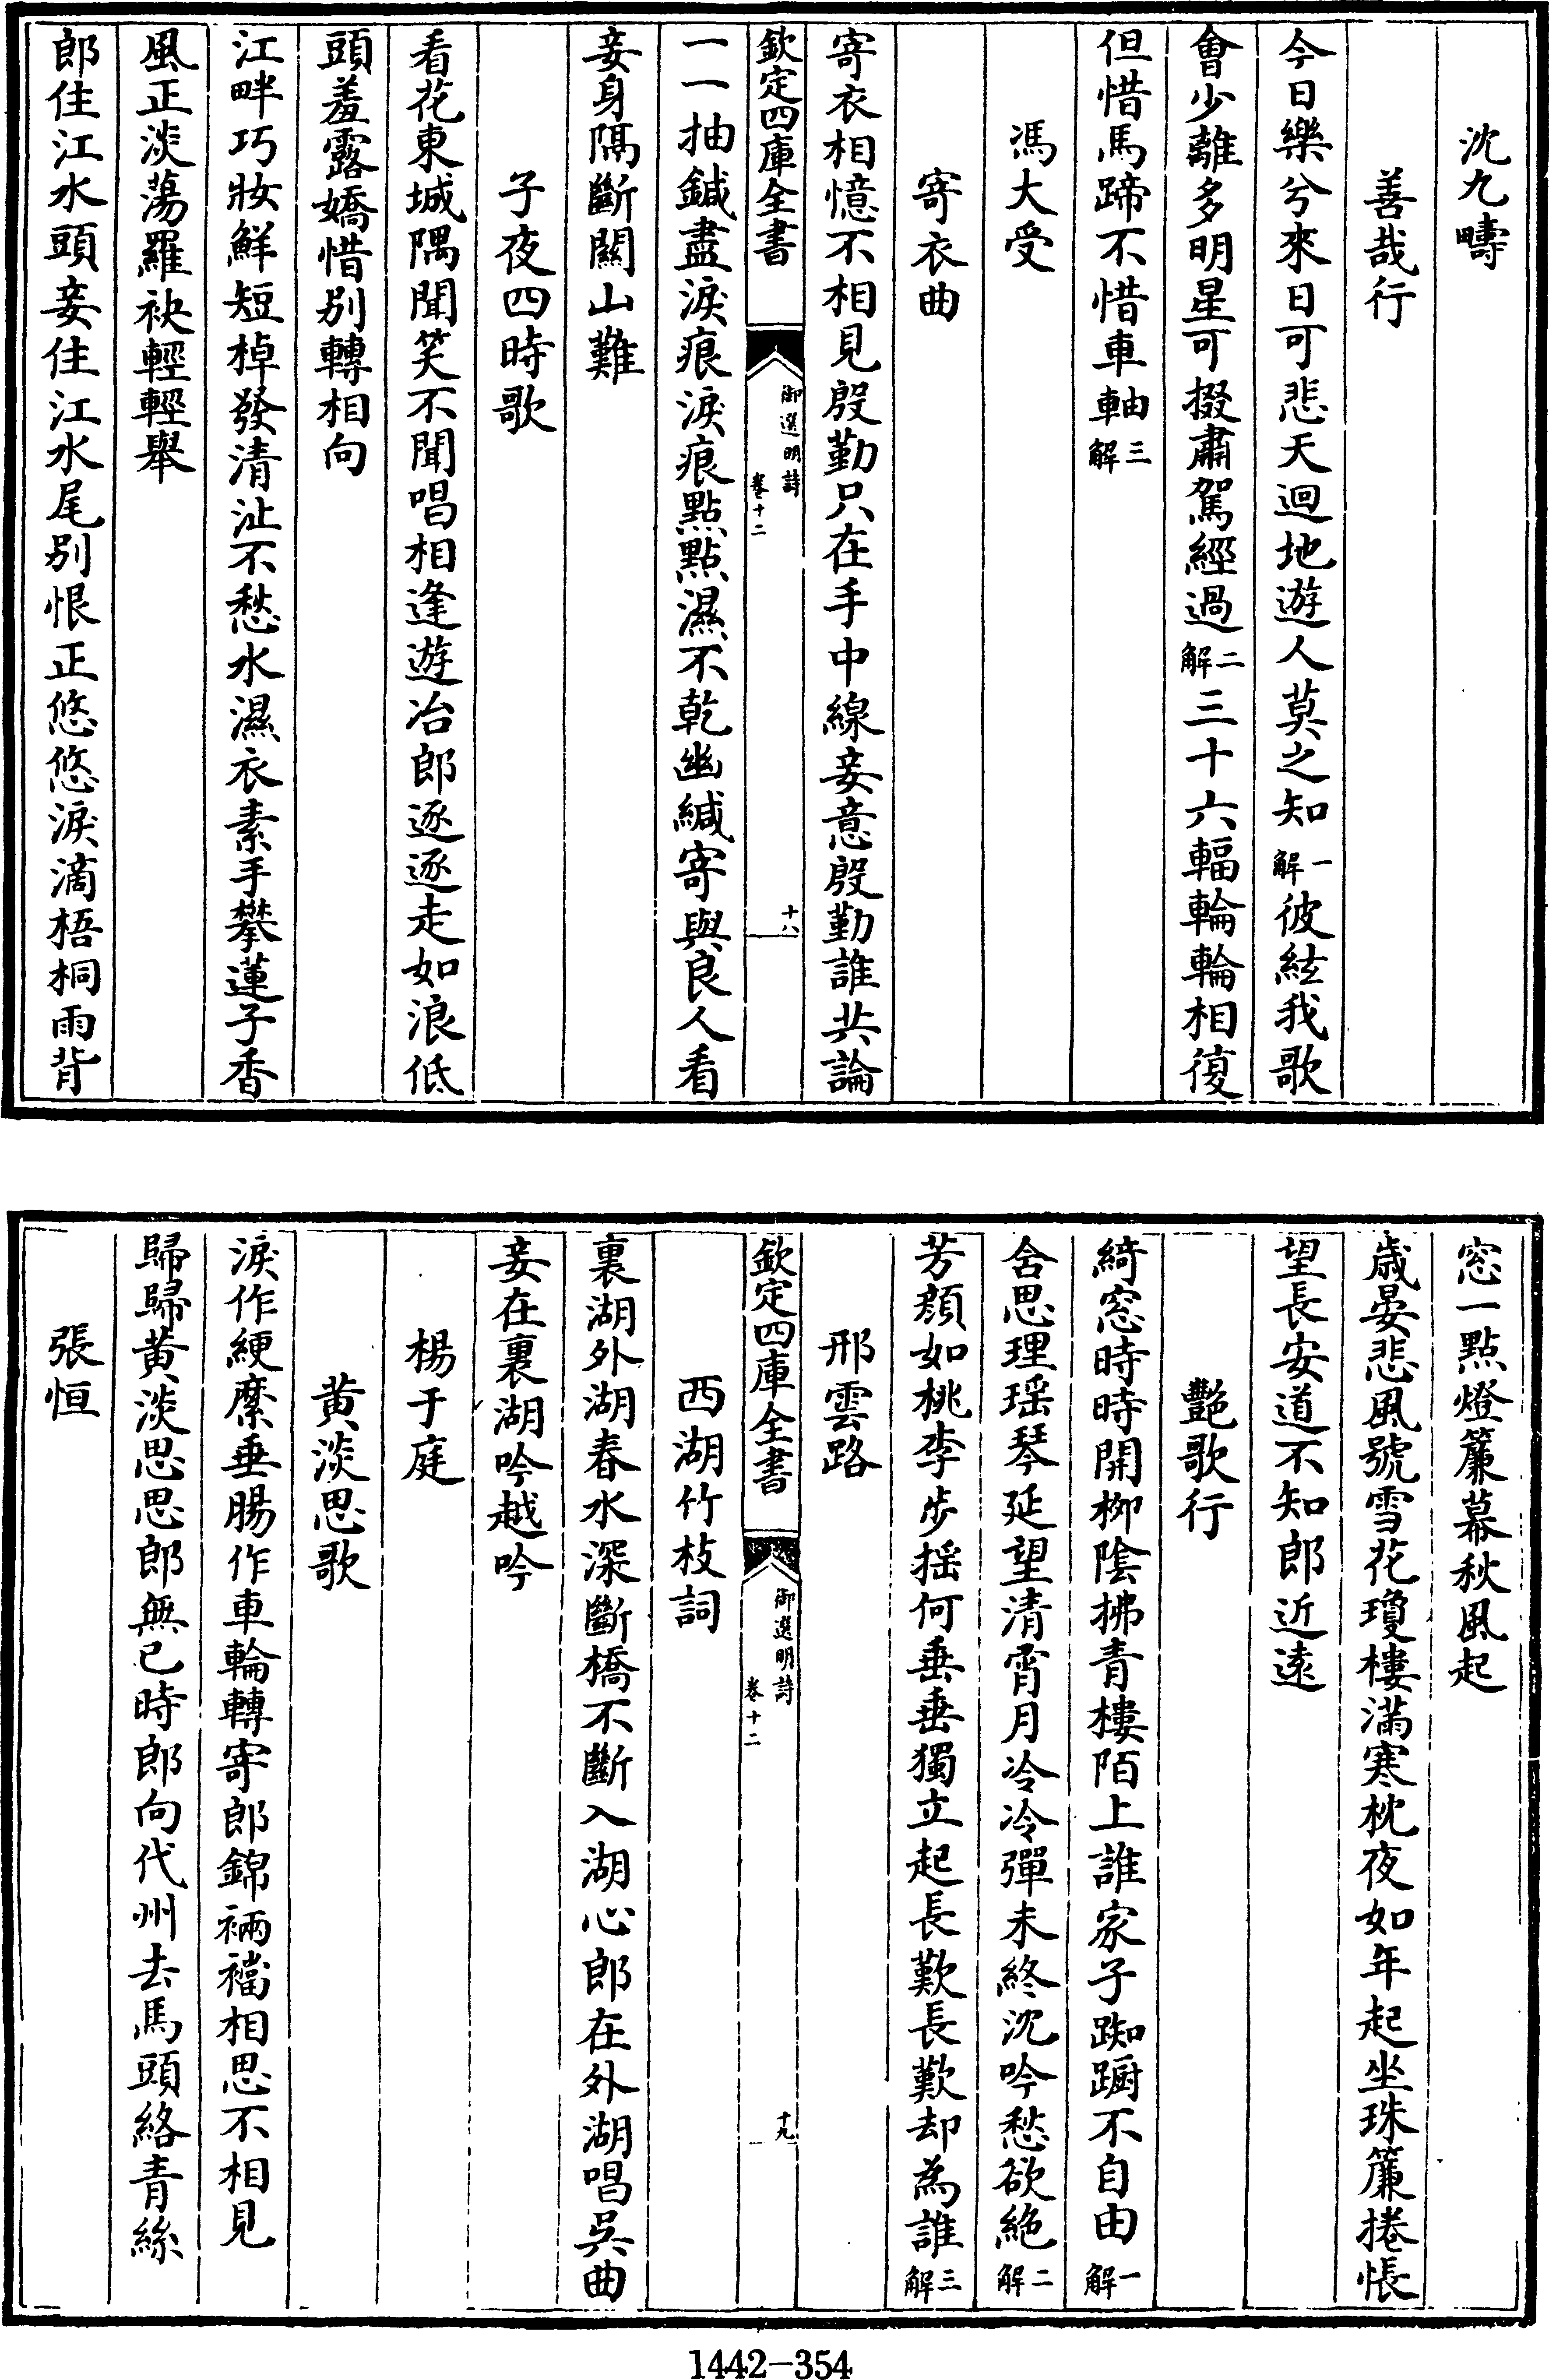 沈九疇
善哉行
今日樂兮來日可悲天迴地遊人莫之知一解彼絃我歌
會少離多明星可掇肅駕經過二解三十六輻輪輪相復
但惜馬蹄不惜車軸三解
馮大受
寄衣曲
寄衣相憶不相見殷勤只在手中線妾意殷勤誰共論
欽定四庫全書
御選明詩
卷十二
十八
一一抽鍼盡淚痕淚痕點點濕不乾幽緘寄與良人看
妾身隔斷關山難
子夜四時歌
看花東城隅聞笑不聞唱相逢遊冶郎逐逐走如浪低
頭羞露嬌惜別轉相向
江畔巧妝鮮短棹發清沚不愁水濕衣素手攀蓮子香
風正淡蕩羅袂輕輕舉
郎住江水頭妾住江水尾別恨正悠悠淚滴梧桐雨背
窓一點燈簾幕秋風起
歲晏悲風號雪花瓊樓滿寒枕夜如年起坐珠簾捲悵
望長安道不知郎近遠
艷歌行
綺窓時時開柳陰拂青樓陌上誰家子踟蹰不自由一解
含思理瑶琴延望清宵月冷冷彈未終沈吟愁欲絶二解
芳顏如桃李步搖何垂垂獨立起長歎長歎却為誰三解
邢雲路
欽定四庫全書
御選明詩
卷十二
十九
西湖竹枝詞
裏湖外湖春水深斷橋不斷入湖心郎在外湖唱吳曲
妾在裏湖吟越吟
楊于庭
黃淡思歌
淚作綆縻垂腸作車輪轉寄郎錦裲襠相思不相見
歸歸黃淡思思郎無已時郎向代州去馬頭絡青絲
張恒
1442-354